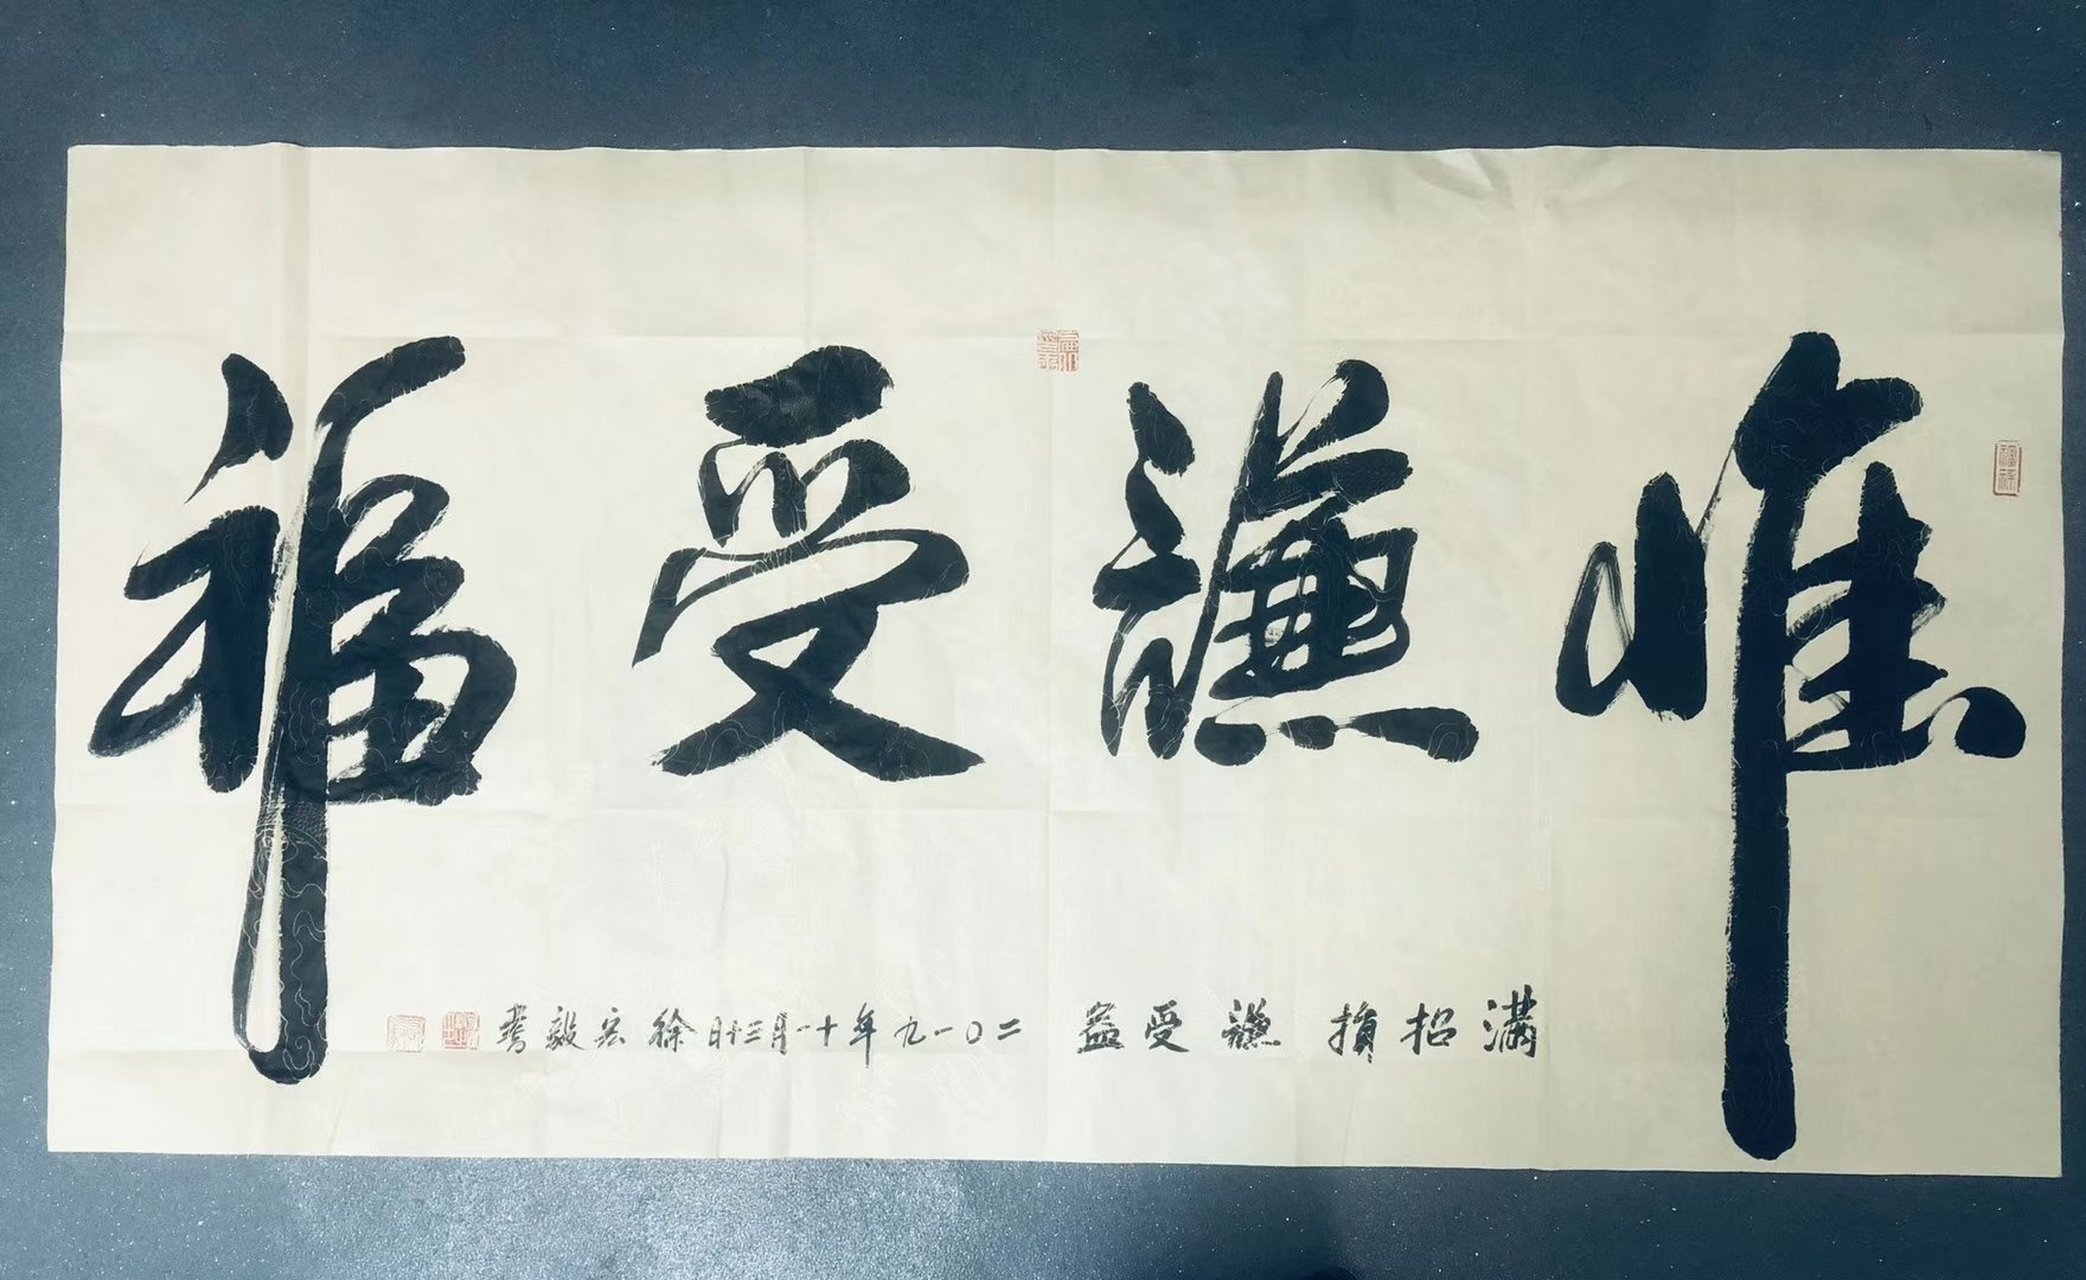 惟謙受福
滿招損 謙受益 二〇一九年十一月三十日徐宏毅書